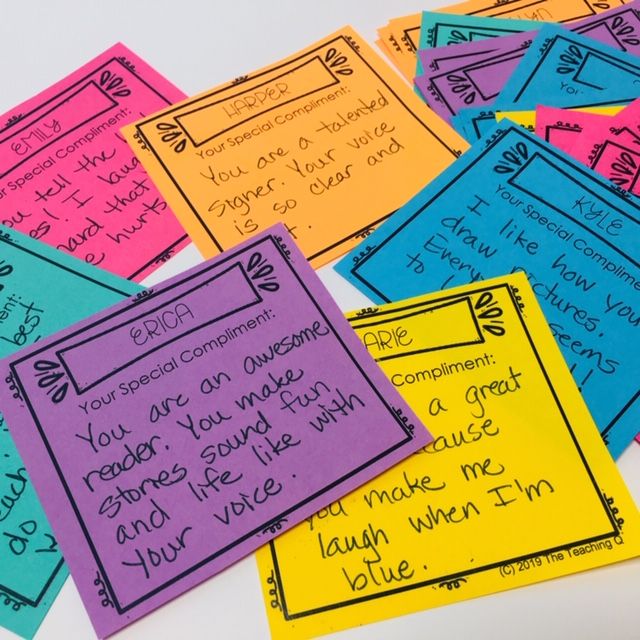 EMILY
Your Special Compliment:
you tell the
I laugh
hard that
hurts
HARPER
Your Special Compliment:
You are a talented
signer. Your voice
is so clear and
KYLE
Your Special Compliment:
I like how you
draw pictures.
Every
to
seems
best
each
do
ERICA
Your Special Compliment:
You are an awesome
reader. You make
stories sound fun
and life like with
your voice.
ARIE
Compliment:
a great
you make me
laugh when I'm
blue.
(C) 2019 The Teaching Q